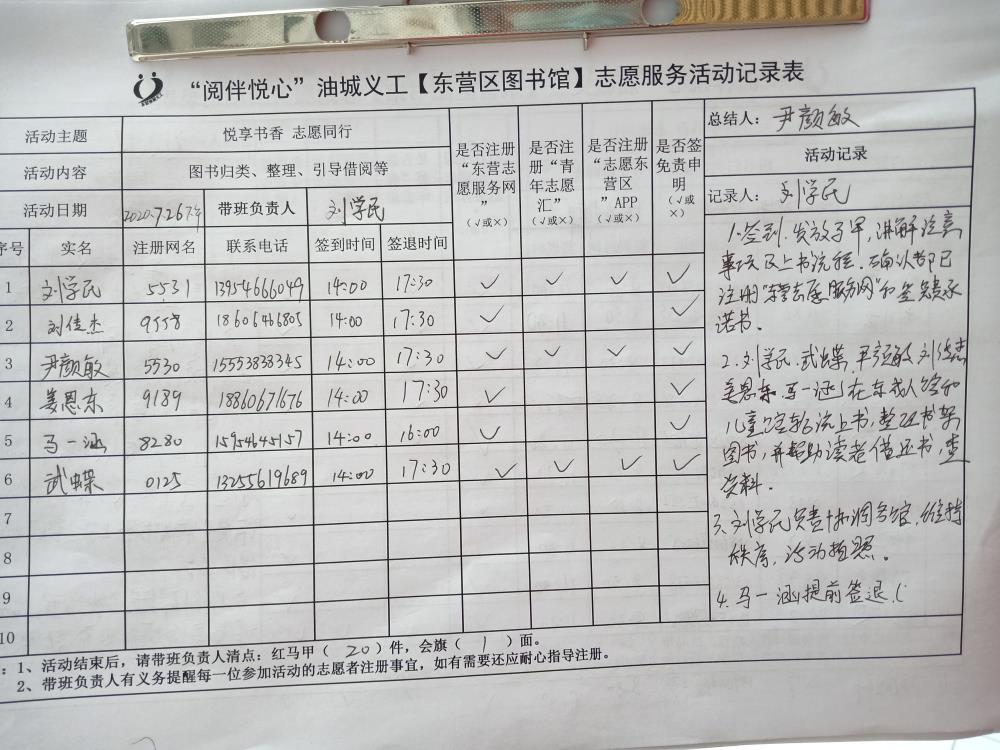 “阅伴悦心”油城义工【东营区图书馆】志愿服务活动记录表
活动主题 悦享书香 志愿同行
活动内容 图书归类、整理、引导借阅等
活动日期 2020.7.26下午 带班负责人 刘学民
是否注册“东营志愿服务网” (√或×)
是否注册“青年志愿汇” (√或×)
是否注册“志愿东营区”APP (√或×)
是否签免责申明 (√或×)
总结人: 尹颜敏
活动记录
记录人: 刘学民
序号 实名 注册网名 联系电话 签到时间 签退时间
1 刘学民 5531 13954666049 14:00 17:30 √ √ √ √
2 刘佳杰 9558 18606466805 14:00 17:30 √ √
3 尹颜敏 5530 15553838345 14:00 17:30 √ √ √ √
4 姜恩东 9189 18860671676 14:00 17:30 √ √
5 马一涵 8280 15954645157 14:00 16:00 √ √
6 武蝶 0125 13255619689 14:00 17:30 √ √ √ √
7
8
9
10
1.签到,发放马甲,讲解注意
事项及上书流程.确认都已
注册“东营志愿服务网”和签免责承
诺书。
2.刘学民.武蝶,尹颜敏,刘佳杰
姜恩东.马一涵在东成人馆和
儿童馆轮流上书,整理书架
图书,并帮助读者借还书,查
资料.
3.刘学民负责协调各馆,维持
秩序,活动拍照。
4.马一涵提前签退.(
:1、活动结束后,请带班负责人清点:红马甲( 20 )件,会旗( 1 )面。
2、带班负责人有义务提醒每一位参加活动的志愿者注册事宜,如有需要还应耐心指导注册。